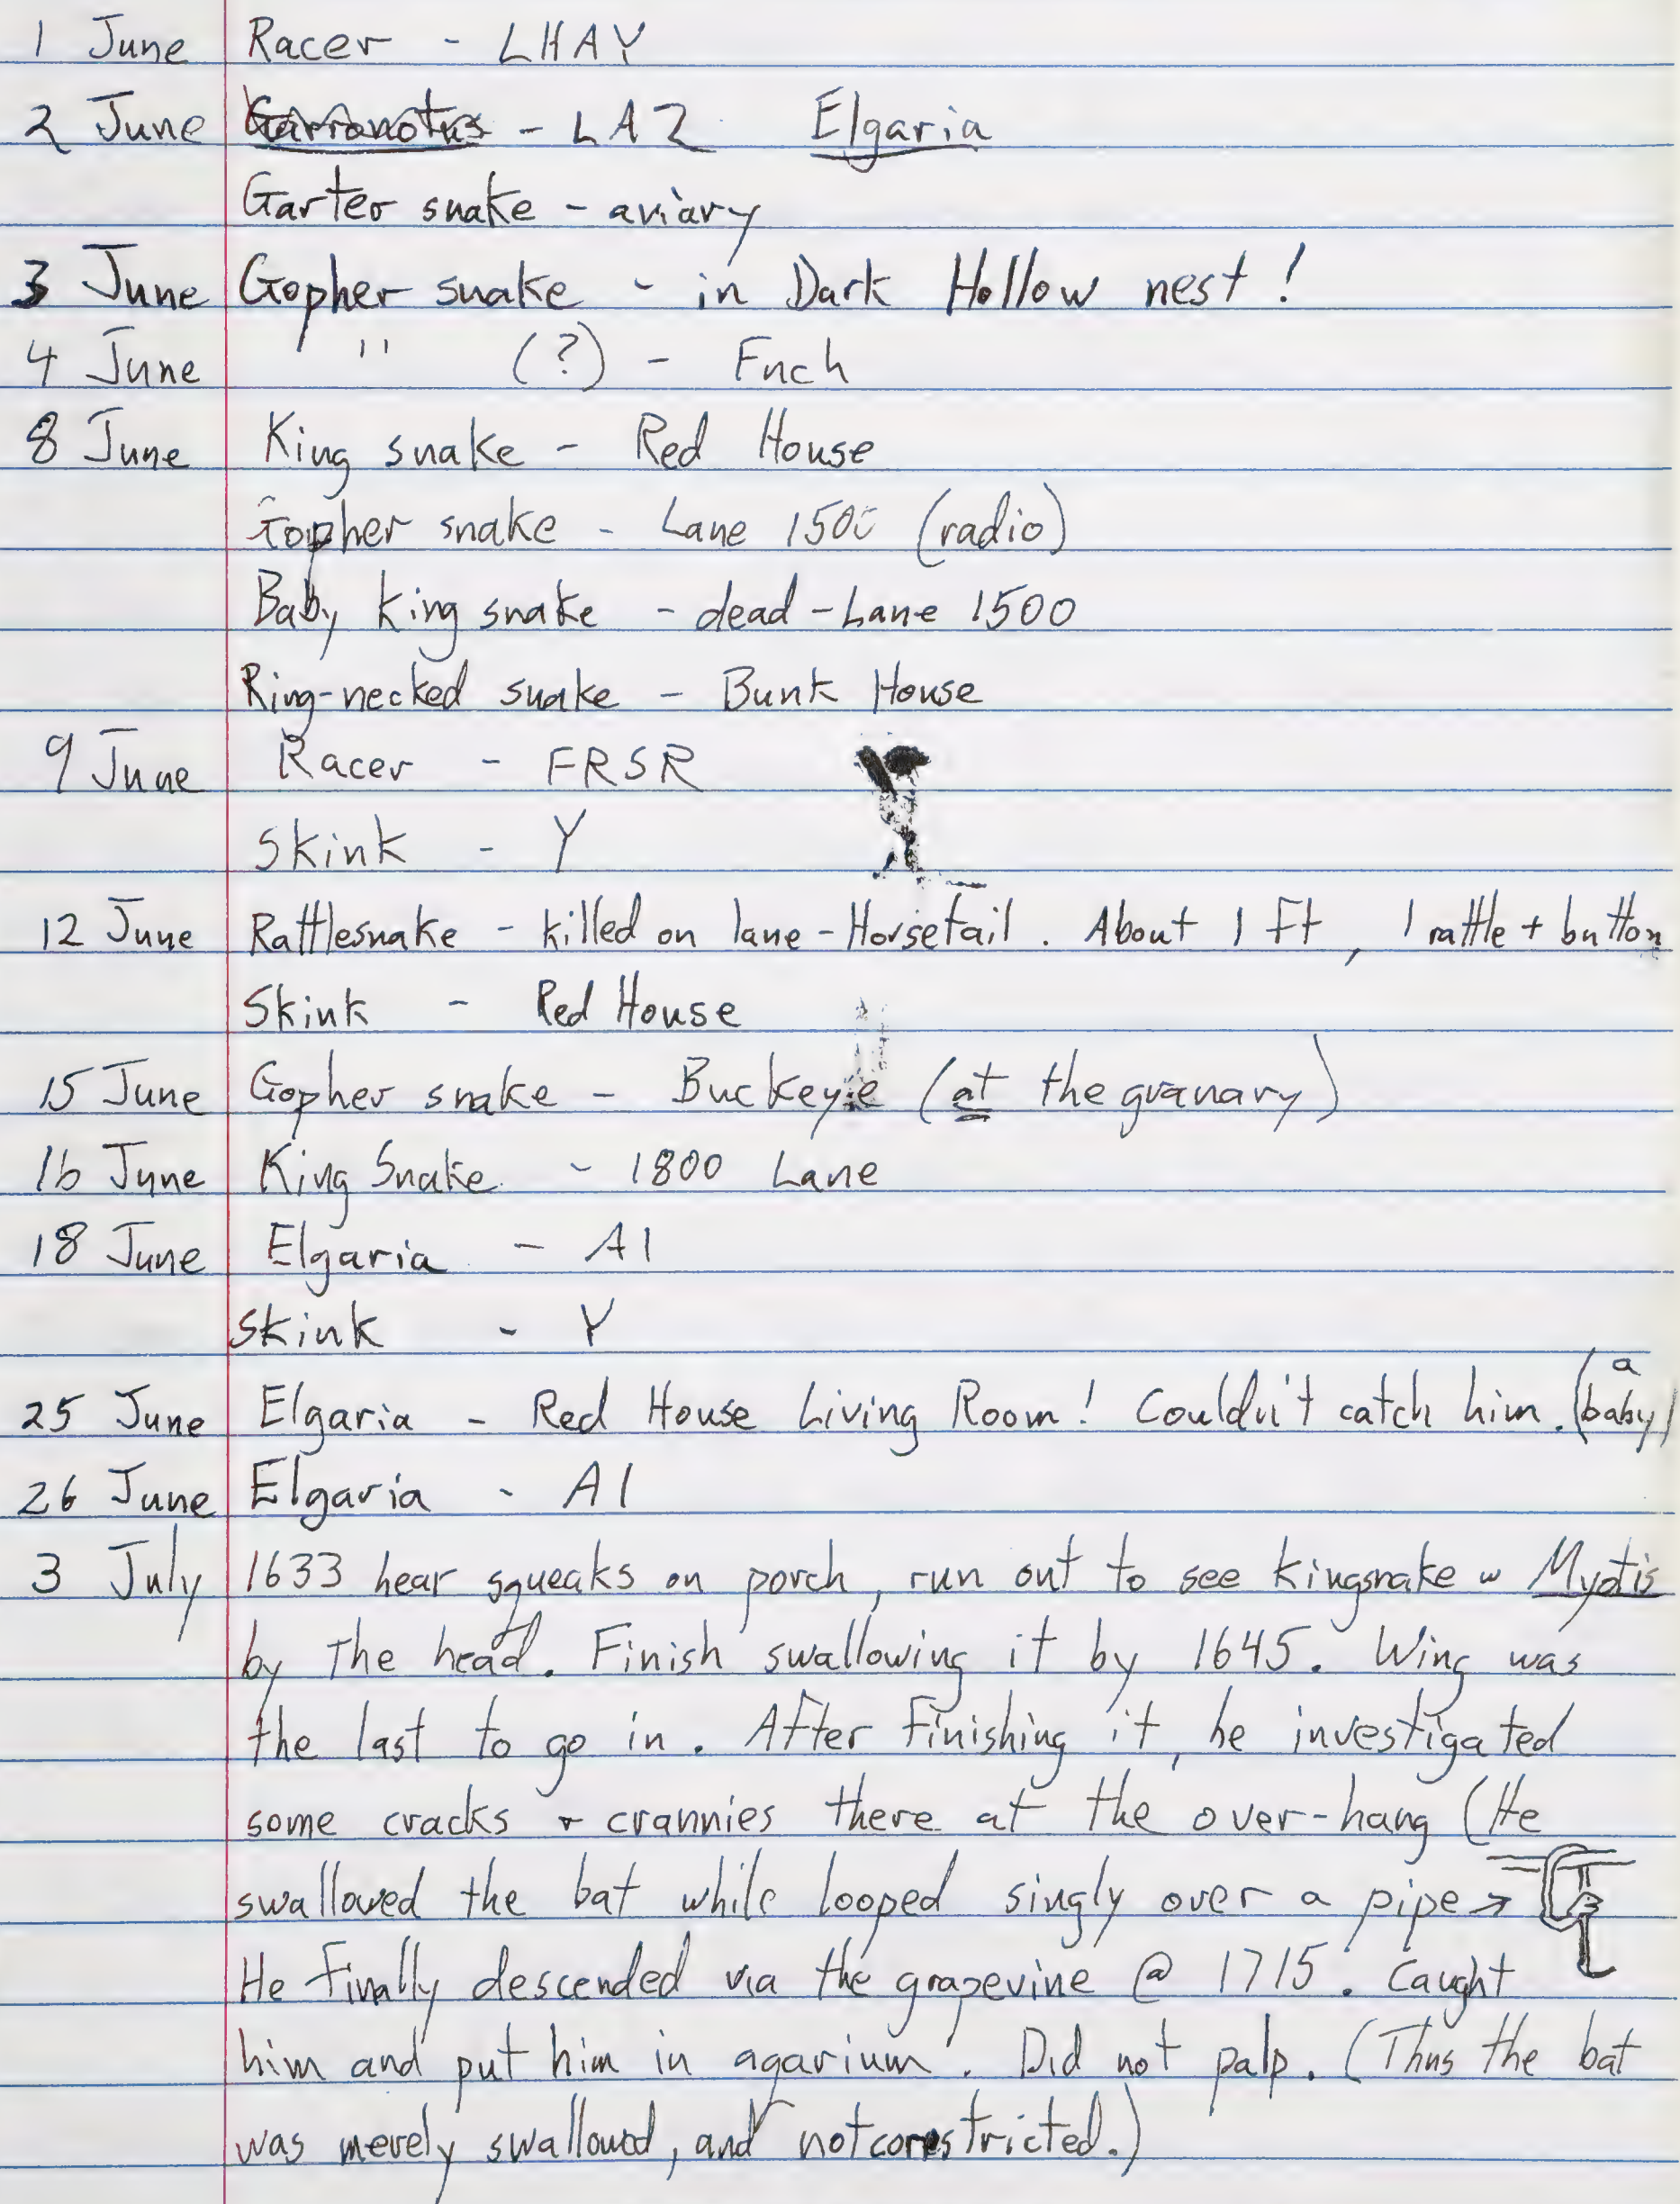 1 June Racer - LHAY
2 June Garronotus - LAZ Elgaria
Garter snake - aviary
3 June Gopher snake - in Dark Hollow nest!
4 June " (?) - Fnch
8 June King snake - Red House
Gopher snake - Lane 1500 (radio)
Baby king snake - dead - Lane 1500
Ring-necked snake - Bunk House
9 June Racer - FRSR
Skink - Y
12 June Rattlesnake - killed on lane - Horsetail. About 1 ft, 1 rattle + button
Skink - Red House
15 June Gopher snake - Buckeye (at the granary)
16 June King Snake - 1800 Lane
18 June Elgaria - A1
Skink - Y
25 June Elgaria - Red House Living Room! Couldn't catch him. (a baby)
26 June Elgaria - A1
3 July 1633 hear squeaks on porch, run out to see kingsnake w Myotis
by the head. Finish swallowing it by 1645. Wing was
the last to go in. After finishing it, he investigated
some cracks + crannies there at the over-hang (He
swallowed the bat while looped singly over a pipe →
He finally descended via the grapevine @ 1715. Caught
him and put him in aqarium. Did not palp. (Thus the bat
was merely swallowed, and not constricted.)